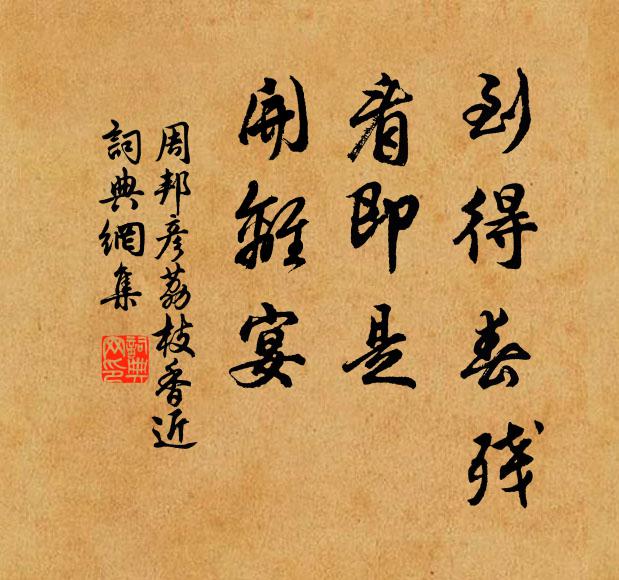 到得春残
看即是
開離宴
周邦彦荔枝香近
詞典網集
詞典網印